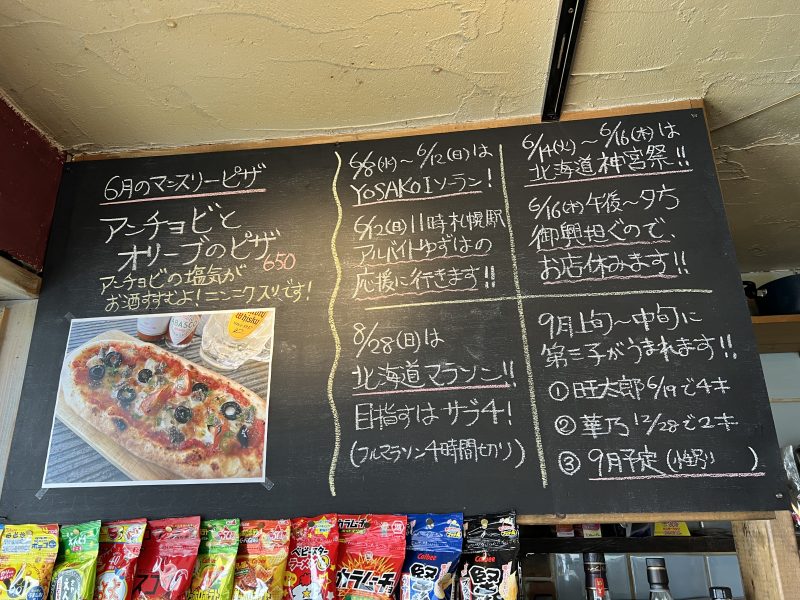 6月のマンスリーピザ
アンチョビと
オリーブのピザ
650
アンチョビの塩気が
お酒すすむよ!ニンニクスリです!
6/8(水)〜6/12(日)は
YOSAKOIソーラン!
6/12(日)11時札幌駅
アルバイトゆずはの
応援に行きます!!
8/28(日)は
北海道マラソン!!
目指すはサブ4!
(フルマラソン4時間切り)
6/14(火)〜6/16(木)は
北海道神宮祭!!
6/16(木)午後〜夕方
御輿担ぐので、
お店休みます!!
9月上旬〜中旬に
第三子がうまれます!!
① 旺太郎 6/19で4才
② 華乃 12/28で2才
③ 9月予定(
)
TABASCO
Whisky
ベビースター
ラーメン
カラムーチョ
Calbee
堅
Calbee
堅